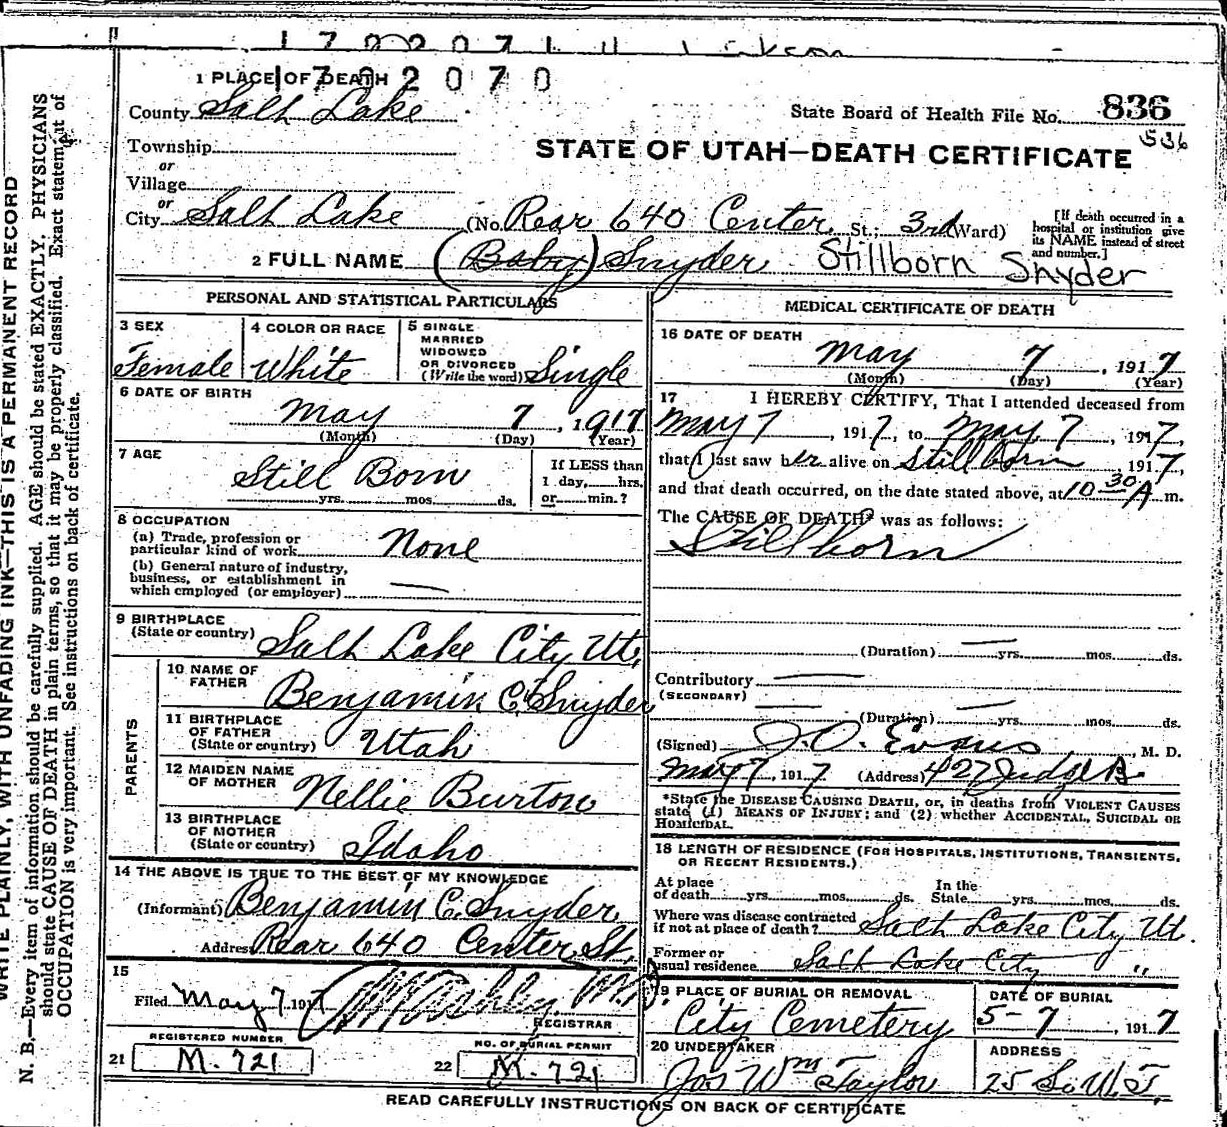 1702070
1 PLACE OF DEATH
County Salt Lake
State Board of Health File No. 836
536
Township
or
Village
or
City Salt Lake
STATE OF UTAH—DEATH CERTIFICATE
(No. Rear 640 Center St.; 3rd Ward)
[If death occurred in a hospital or institution give its NAME instead of street and number.]
2 FULL NAME (Baby) Snyder Stillborn Snyder
PERSONAL AND STATISTICAL PARTICULARS
3 SEX
Female
4 COLOR OR RACE
White
5 SINGLE
MARRIED
WIDOWED
OR DIVORCED
(Write the word) Single
6 DATE OF BIRTH
May 7, 1917
(Month) (Day) (Year)
7 AGE
Still Born
yrs. mos. ds.
If LESS than
1 day, hrs.
or min.?
8 OCCUPATION
(a) Trade, profession or
particular kind of work None
(b) General nature of industry,
business, or establishment in
which employed (or employer) —
9 BIRTHPLACE
(State or country) Salt Lake City Ut.
PARENTS
10 NAME OF
FATHER Benjamin C. Snyder
11 BIRTHPLACE
OF FATHER
(State or country) Utah
12 MAIDEN NAME
OF MOTHER Nellie Burton
13 BIRTHPLACE
OF MOTHER
(State or country) Idaho
14 THE ABOVE IS TRUE TO THE BEST OF MY KNOWLEDGE
(Informant) Benjamin C. Snyder
Address Rear 640 Center St.
15
Filed May 7, 1917
REGISTRAR
REGISTERED NUMBER
21 M. 721
NO. OF BURIAL PERMIT
22 M. 721
MEDICAL CERTIFICATE OF DEATH
16 DATE OF DEATH
May 7, 1917
(Month) (Day) (Year)
17 I HEREBY CERTIFY, That I attended deceased from
May 7, 1917, to May 7, 1917,
that I last saw her alive on Still born 1917,
and that death occurred, on the date stated above, at 10 30 A m.
The CAUSE OF DEATH* was as follows:
Still born
(Duration) — yrs. mos. ds.
Contributory —
(SECONDARY)
(Duration) — yrs. mos. ds.
(Signed) J. O. Evans, M. D.
May 7, 1917 (Address) 427 Judge B
*State the DISEASE CAUSING DEATH, or, in deaths from VIOLENT CAUSES
state (1) MEANS OF INJURY; and (2) whether ACCIDENTAL, SUICIDAL OR
HOMICIDAL.
18 LENGTH OF RESIDENCE (FOR HOSPITALS, INSTITUTIONS, TRANSIENTS,
OR RECENT RESIDENTS.)
At place
of death yrs. mos. ds.
In the
State yrs. mos. ds.
Where was disease contracted
if not at place of death? Salt Lake City Ut.
Former or
usual residence Salt Lake City "
19 PLACE OF BURIAL OR REMOVAL
City Cemetery
DATE OF BURIAL
5-7, 1917
20 UNDERTAKER
Jos Wm Taylor
ADDRESS
25 So. W. T.
READ CAREFULLY INSTRUCTIONS ON BACK OF CERTIFICATE
WRITE PLAINLY, WITH UNFADING INK—THIS IS A PERMANENT RECORD
N. B.—Every item of information should be carefully supplied. AGE should be stated EXACTLY. PHYSICIANS
should state CAUSE OF DEATH in plain terms, so that it may be properly classified. Exact statement of
OCCUPATION is very important. See instructions on back of certificate.